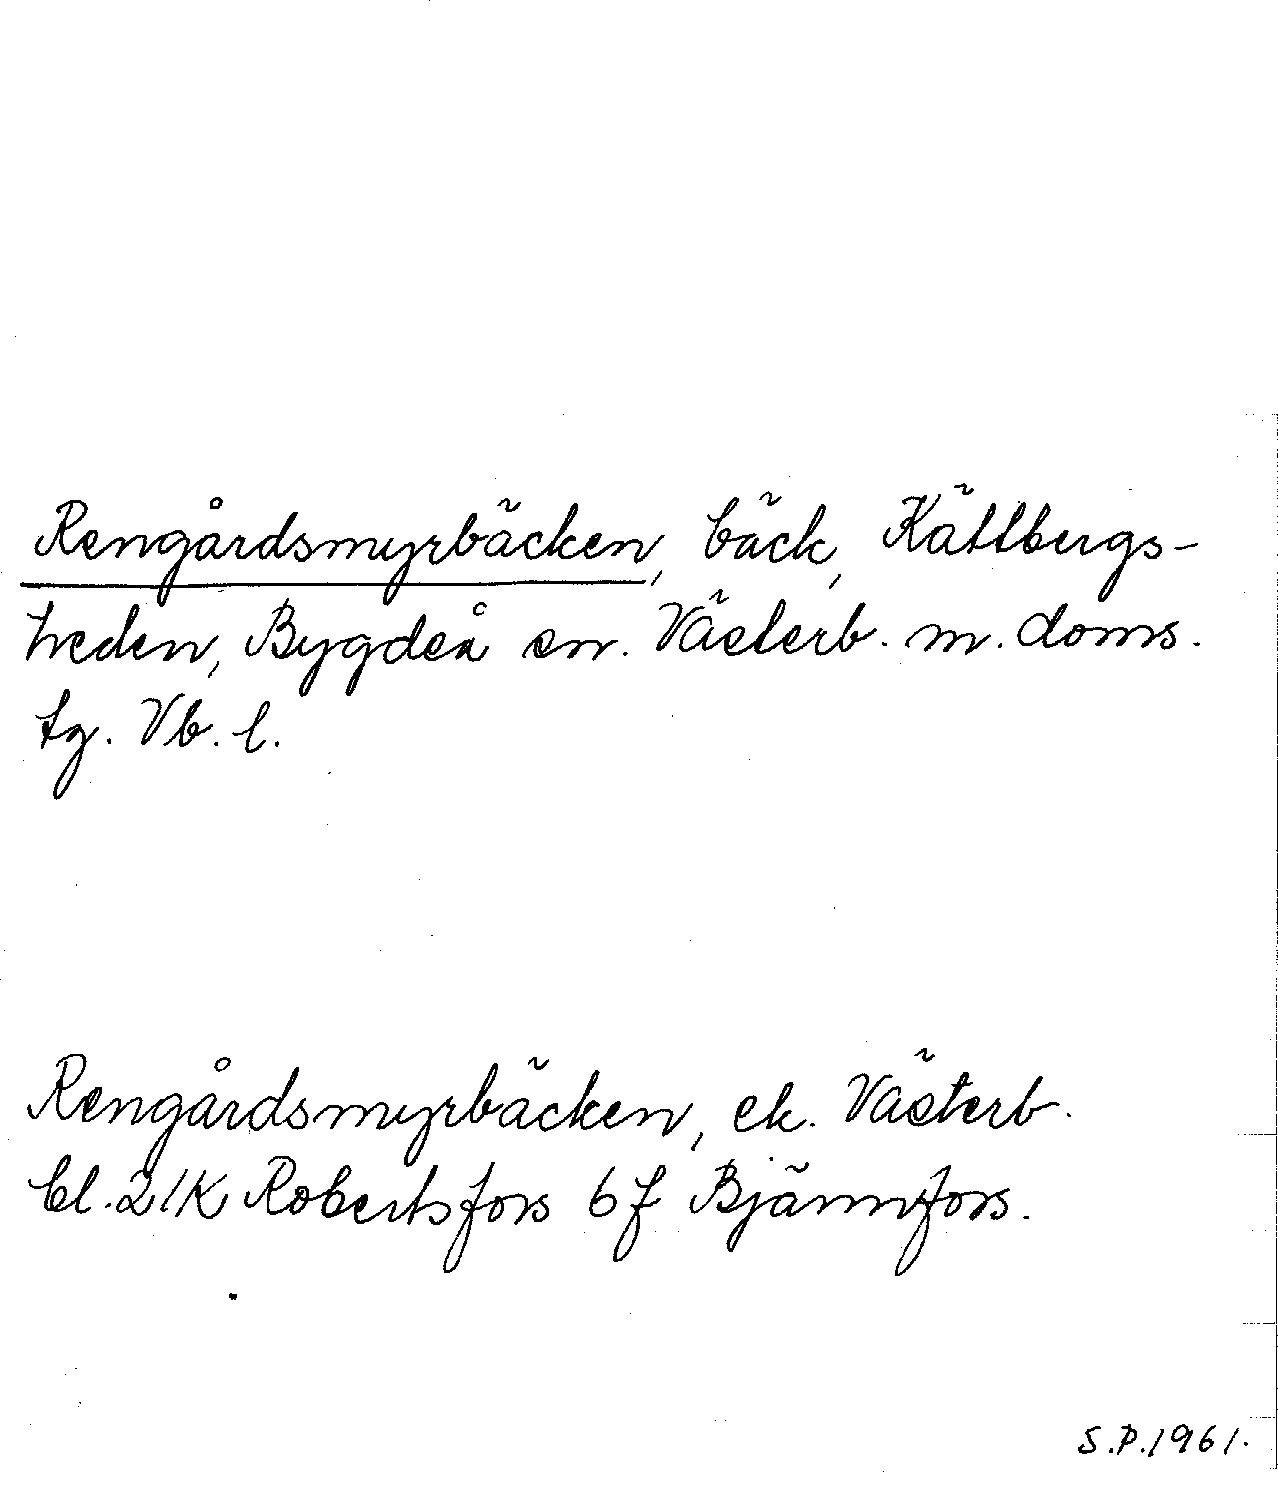 Rengårdsmyrbäcken, bäck, Kättbergs-
heden, Bygdeå sn. Västerb. m. doms.
tg. Vb. l.
Rengårdsmyrbäcken, ek. Västerb.
bl. 21K Robertsfors 6f Bjännfors.
S.P.1961.